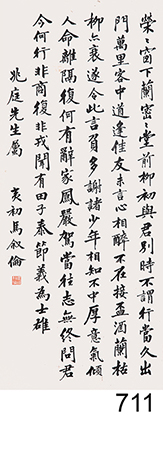 榮〻窗下蘭密〻堂前柳初與君別時不謂行當久出
門萬里客中道逢佳友未言心相醉不在接盃酒蘭枯
柳亦衰遂令此言負多謝諸少年相知不中厚意氣傾
人命離隔復何有辭家夙嚴駕當往志無終問君
今何行非商復非戎聞有田子泰節義為士雄
兆庭先生屬
夷初馬叙倫
711